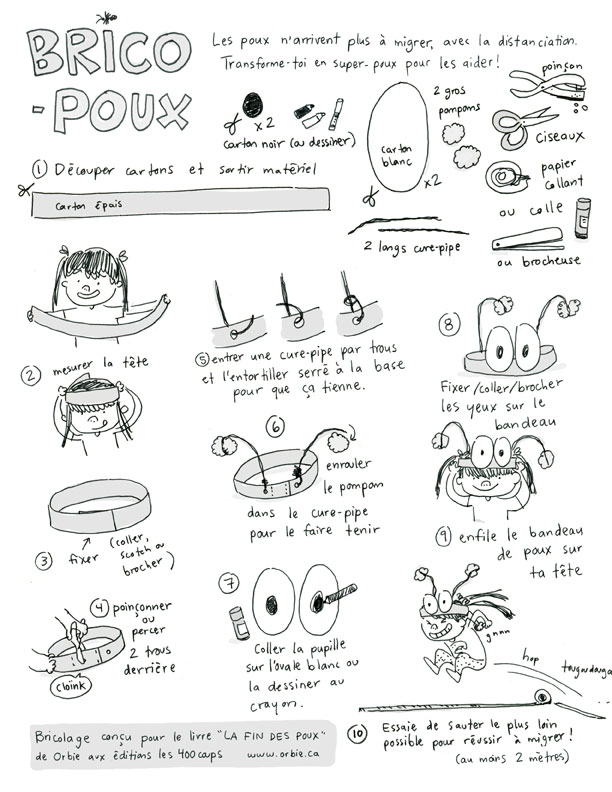 BRICO
-POUX
Les poux n'arrivent plus à migrer, avec la distanciation.
Transforme-toi en super-poux pour les aider!
x2
carton noir (ou dessiner)
carton
blanc
x2
2 gros
pompoms
poinçon
ciseaux
papier
collant
ou colle
ou brocheuse
2 longs cure-pipe
① Découper cartons et sortir matériel
carton épais
② mesurer la tête
③ fixer (coller,
scotch ou
brocher)
④ poinçonner
ou
percer
2 trous
derrière
cloink
⑤ entrer une cure-pipe par trous
et l'entortiller serré à la base
pour que ça tienne.
⑥
enrouler
le pompom
dans le cure-pipe
pour le faire tenir
⑦
Coller la pupille
sur l'ovale blanc ou
la dessiner au
crayon.
⑧
Fixer/coller/brocher
les yeux sur le
bandeau
⑨ enfile le bandeau
de poux sur
ta tête
gnnn
hop
⑩ Essaie de sauter le plus loin
possible pour réussir à migrer!
(au moins 2 mètres)
Bricolage conçu pour le livre "LA FIN DES POUX"
de Orbie aux éditions les 400 coups www.orbie.ca